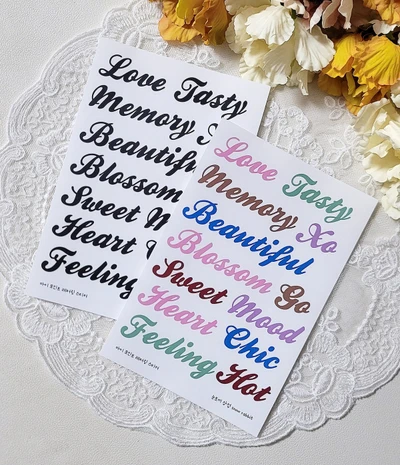 Love Tasty
Memory X
Beautifu
Blossom
Sweet M
Heart
Feeling
Love Tasty
Memory Xo
Beautiful
Blossom Go
Sweet Mood
Heart Chic
Feeling Hot